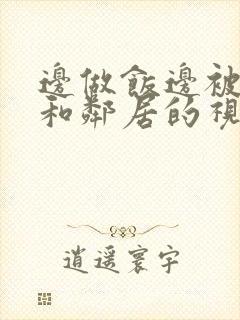 邊做飯邊被
和鄰居的視
逍遥寰宇